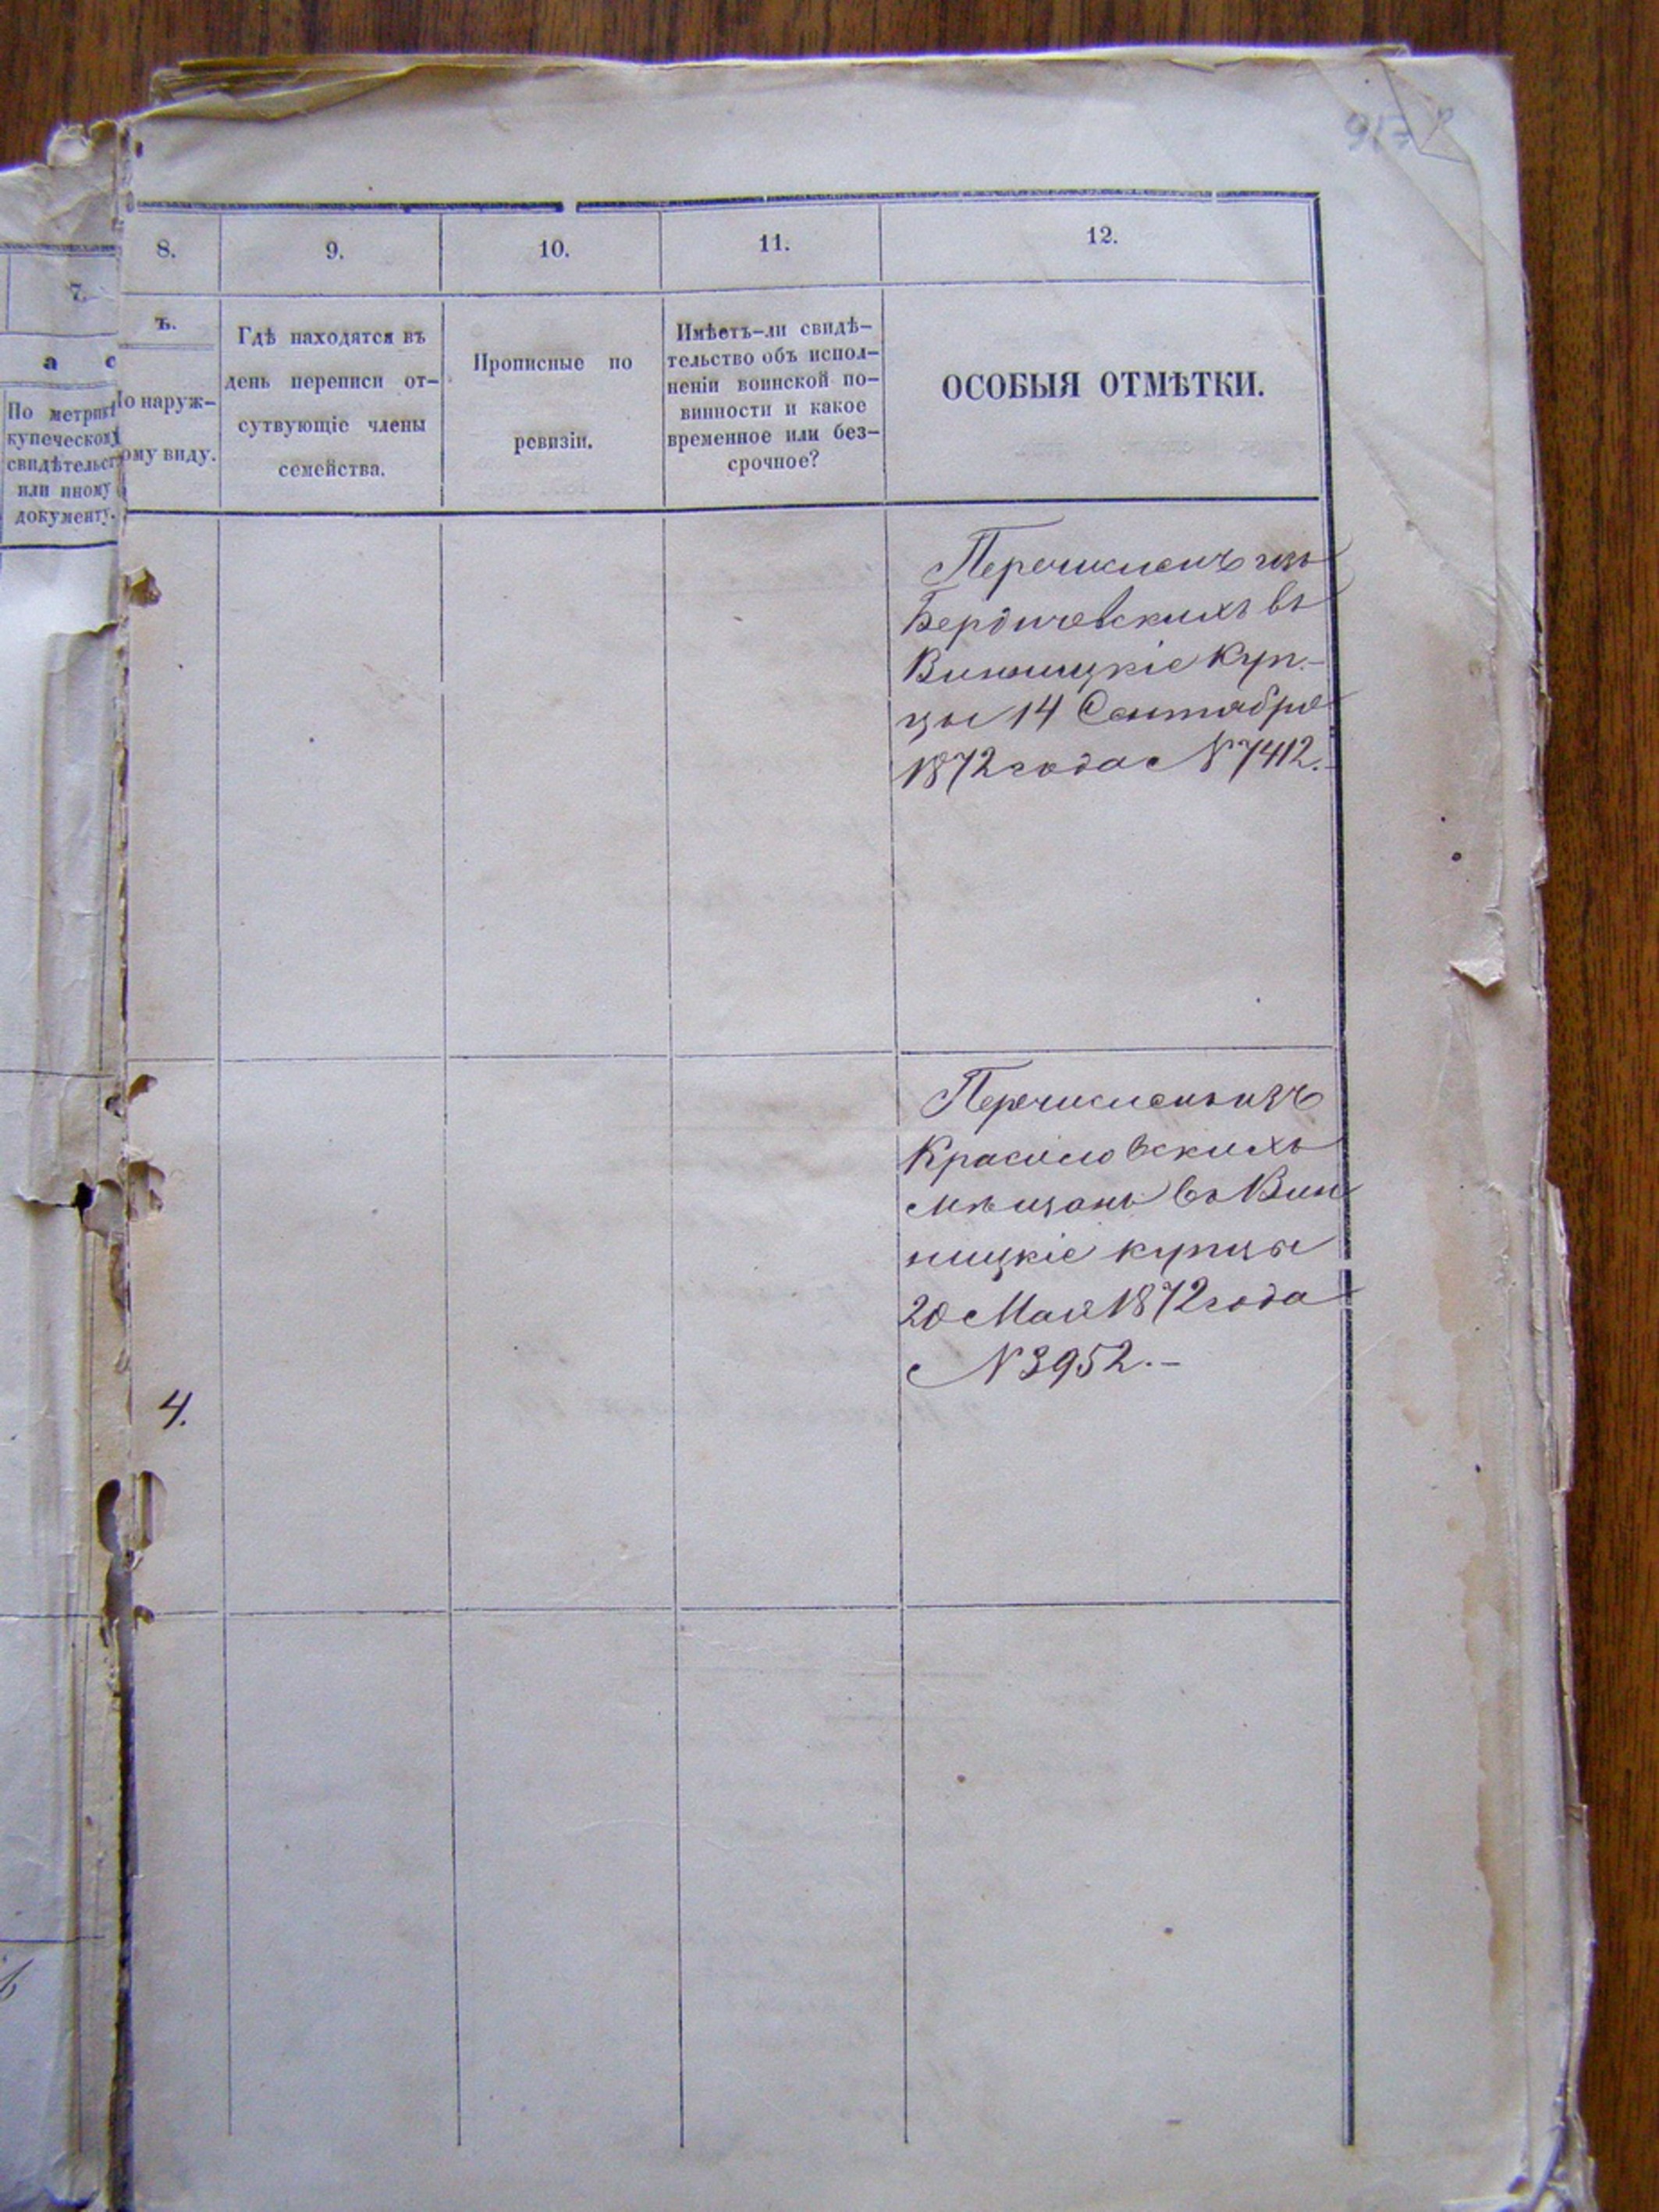 7.
а
По метрик
купеческом
свидѣтельст
или иному
документу.
8.
9.
10.
11.
12.
ъ.
о наруж-
ому виду.
Гдѣ находятся въ
день переписи от-
сутвующіе члены
семейства.
Прописные по
ревизіи.
Имѣетъ-ли свидѣ-
тельство объ испол-
неніи воинской по-
винности и какое
временное или без-
срочное?
ОСОБЫЯ ОТМѢТКИ.
Перечисленъ изъ
Бердичевскихъ въ
Винницкіе Куп-
цы 14 Сентября
1872 года № 7412.
Перечисленъ изъ
Красиловскихъ
мѣщанъ въ Вин
ницкіе купцы
20 Мая 1872 года
№ 3952.-
4.